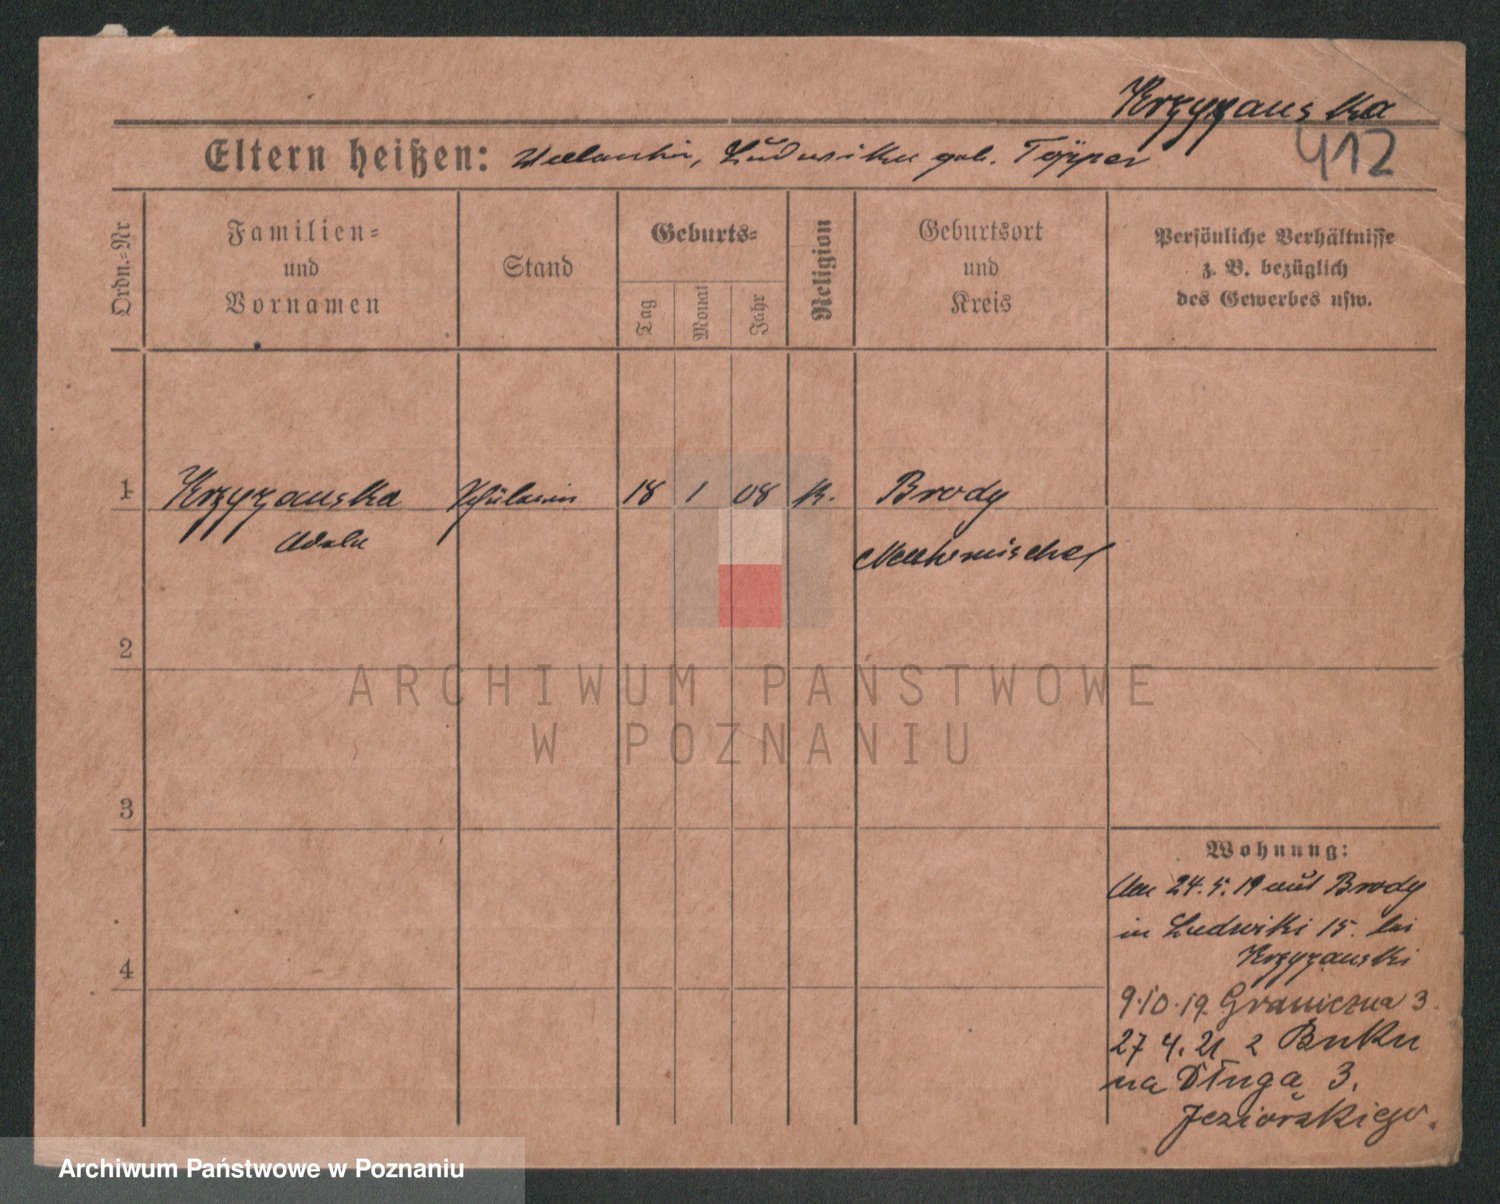 Krzyzanska
412
Eltern heißen: Ludwika geb. Töpper
Ordn.-Nr
Familien-
und
Vornamen
Stand
Geburts-
Tag
Monat
Jahr
Religion
Geburtsort
und
Kreis
Persönliche Verhältnisse
z. B. bezüglich
des Gewerbes usw.
1 Krzyzanska Schülerin 18 1 08 K. Brody
Adele Neutomischel
2
ARCHIWUM PAŃSTWOWE
W POZNANIU
3
4
Wohnung:
24.5.19 aus Brody
in Ludwiki 15. bei
Krzyzanski
9.10.19. Graniczna 3.
27 4. 21 z Buku
na Długą 3.
Jeziorskiego.
Archiwum Państwowe w Poznaniu